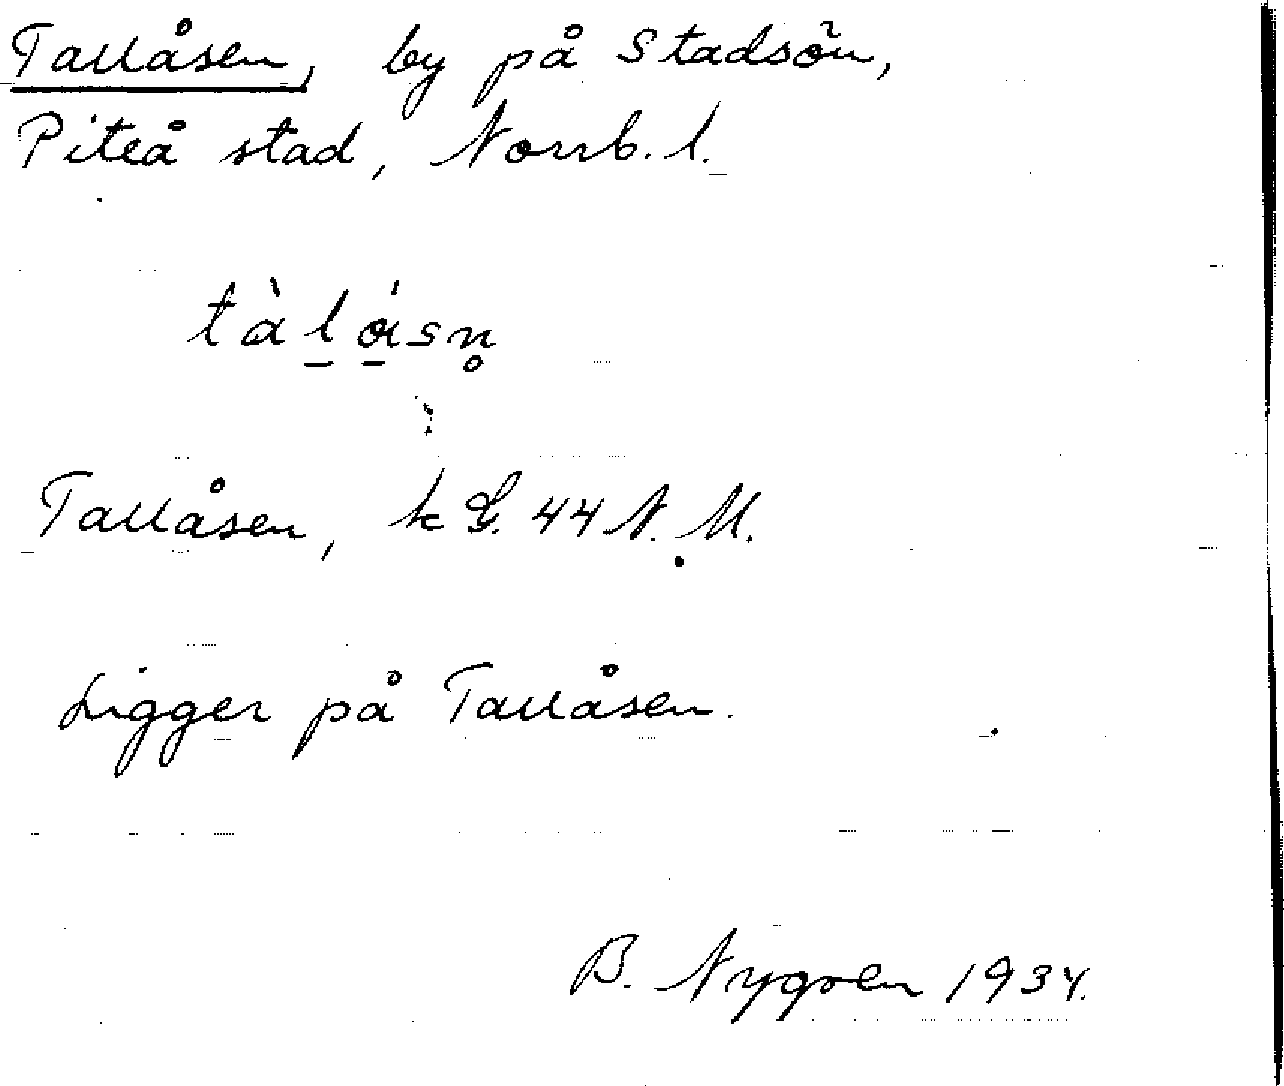 Tallåsen, by på Stadsön,
Piteå stad, Norrb. l.
Tallåsen, k G. 44 N. M.
Ligger på Tallåsen.
B. Nygren 1934.